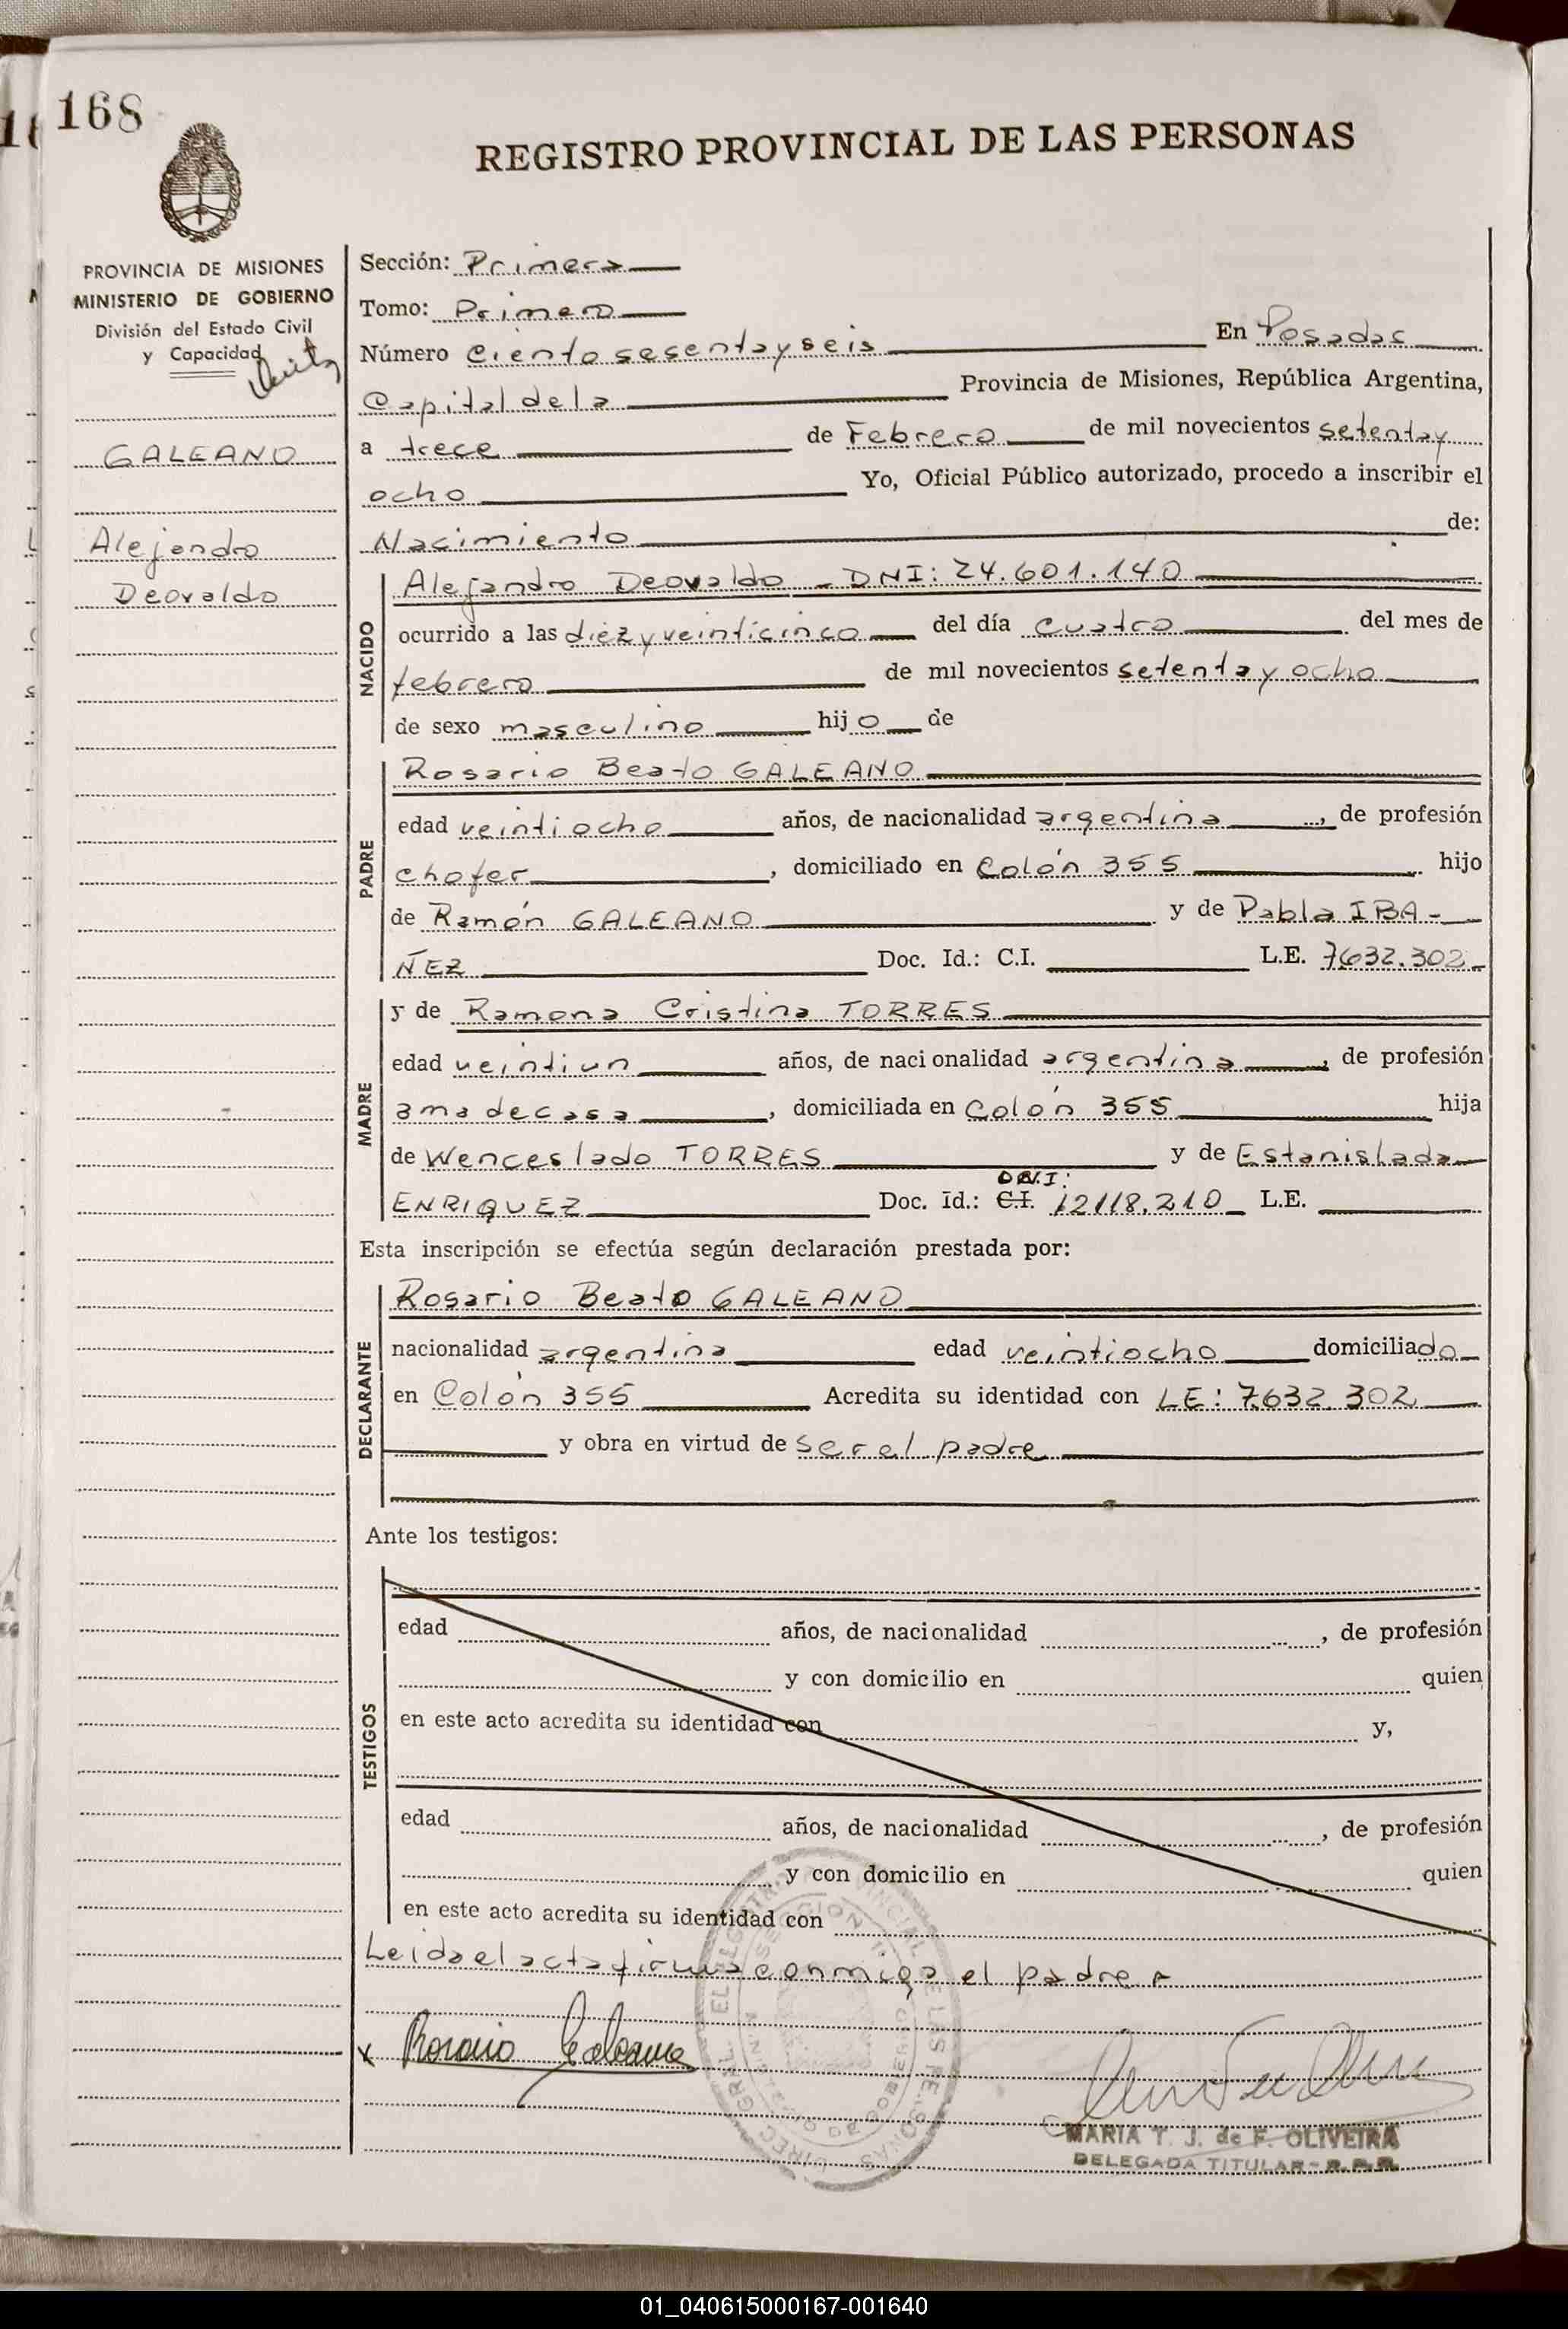 168
REGISTRO PROVINCIAL DE LAS PERSONAS
PROVINCIA DE MISIONES
MINISTERIO DE GOBIERNO
División del Estado Civil
y Capacidad
GALEANO
Alejandro
Deovaldo
Sección: Primera
Tomo: Primero
Número Ciento sesenta y seis En Posadas
Capital de la Provincia de Misiones, República Argentina,
a trece de Febrero de mil novecientos setenta y
ocho Yo, Oficial Público autorizado, procedo a inscribir el
Nacimiento de:
NACIDO
Alejandro Deovaldo - DNI: 24.601.140
ocurrido a las diez y veinticinco del día cuatro del mes de
febrero de mil novecientos setenta y ocho
de sexo masculino hijo de
PADRE
Rosario Beato GALEANO
edad veintiocho años, de nacionalidad argentina, de profesión
chofer, domiciliado en Colón 355 hijo
de Ramón GALEANO y de Pabla IBA-
ÑEZ Doc. Id.: C.I. L.E. 7632.302
MADRE
y de Ramona Cristina TORRES
edad veintiun años, de nacionalidad argentina, de profesión
ama de casa, domiciliada en Colón 355 hija
de Wenceslado TORRES y de Estanislada
ENRIQUEZ Doc. Id.: C.I. DNI: 12118.210 L.E.
Esta inscripción se efectúa según declaración prestada por:
DECLARANTE
Rosario Beato GALEANO
nacionalidad argentina edad veintiocho domiciliado
en Colón 355 Acredita su identidad con LE: 7632.302
y obra en virtud de ser el padre
Ante los testigos:
TESTIGOS
edad años, de nacionalidad , de profesión
y con domicilio en quien
en este acto acredita su identidad con y,
edad años, de nacionalidad , de profesión
y con domicilio en quien
en este acto acredita su identidad con
Leida el acta firma conmigo el padre
x Rosario Galeano
MARIA T. J. de F. OLIVEIRA
DELEGADA TITULAR - R.P.P.
01_040615000167-001640